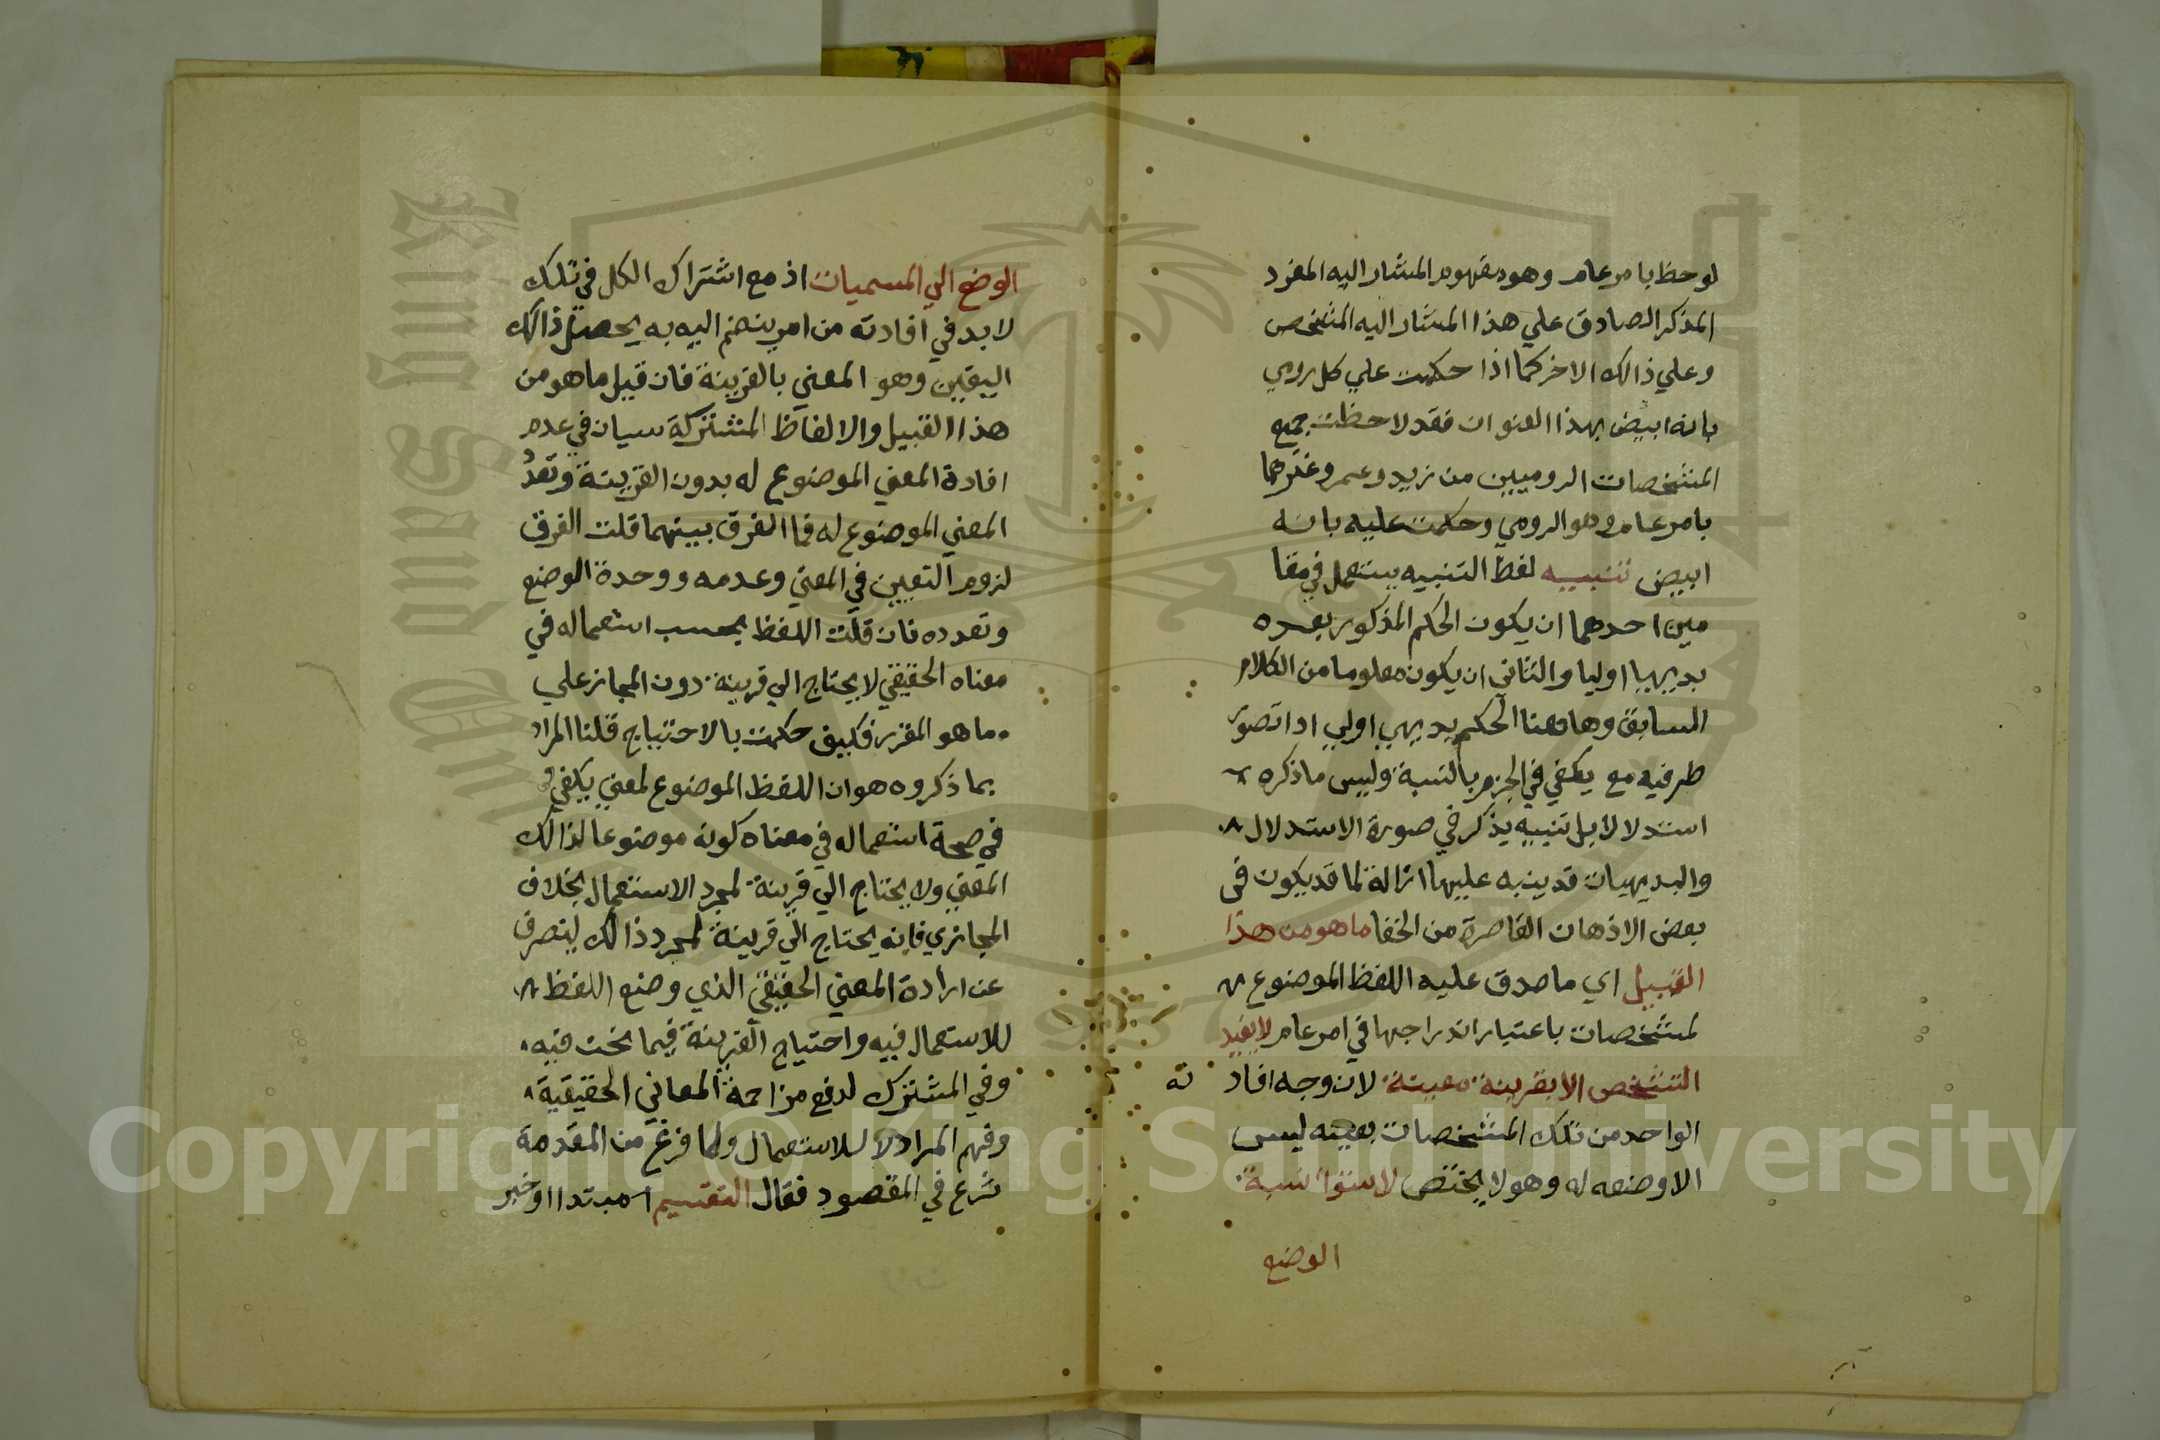 لوحظ بامر عام وهو مفهوم المشار اليه المفرد
المذكر الصادق علي هذا المشار اليه المشخص
وعلي ذالك الاخر كما اذا حكمت علي كل رومي
بانه ابيض بهذا العنوان فقد لاحظت جميع
المشخصات الروميين من زيد وعمر وغيرهما
بامر عام وهو الرومي وحكمت عليه بانه
ابيض تنبيه لفظ التنبيه يستعمل في مقا
مين احدهما ان يكون الحكم المذكور بعده
بديهيا اوليا والثاني ان يكون معلوما من الكلام
السابق وهاهنا الحكم بديهي اولي اذا تصور
طرفيه مع يكفي في الجزم بالنسبة وليس ماذكره
استدلالا بل تنبيه يذكر في صورة الاستدلال
والبديهيات قد ينبه عليها ازالة لما قد يكون في
بعض الاذهان القاصرة من الخفا ما هو من هذا
القبيل اي ما صدق عليه اللفظ الموضوع
لمشخصات باعتبار اندراجها في امر عام لا يفيد
التشخص الا بقرينة معينة لان وجه افاد ته
الواحد من تلك المشخصات بعينه ليس
الا وضعه له وهو لا يختص لاستواء نسبة
الوضع
الوضع الي المسميات اذ مع اشتراك الكل في تلك
لا بد في افادته من امر ينضم اليه به يحصل ذالك
اليقين وهو المعني بالقرينة فان قيل ما هو من
هذا القبيل والالفاظ المشتركة سيان في عدم
افادة المعني الموضوع له بدون القرينة وتعدد
المعني الموضوع له فما الفرق بينهما قلت الفرق
لزوم التعيين في المعني وعدمه ووحدة الوضع
وتعدده فان قلت اللفظ بحسب استعماله في
معناه الحقيقي لا يحتاج الي قرينة دون المجاز علي
ما هو المقرر فكيف حكمت بالاحتياج قلنا المراد
بما ذكروه هو ان اللفظ الموضوع لمعني يكفي
في صحة استعماله في معناه كونه موضوعا لذالك
المعني ولا يحتاج الي قرينة لمجرد الاستعمال بخلاف
المجازي فانه يحتاج الي قرينة لمجرد ذالك ليتصرف
عن ارادة المعني الحقيقي الذي وضع اللفظ
للاستعمال فيه واحتياج القرينة فيما نحن فيه
وفي المشترك لدفع مزاحمة المعاني الحقيقية
وفهم المراد لا للاستعمال ولما فرغ من المقدمة
شرع في المقصود فقال التقسيم مبتدا او خبر
Copyright © King Saud University
King Saud University